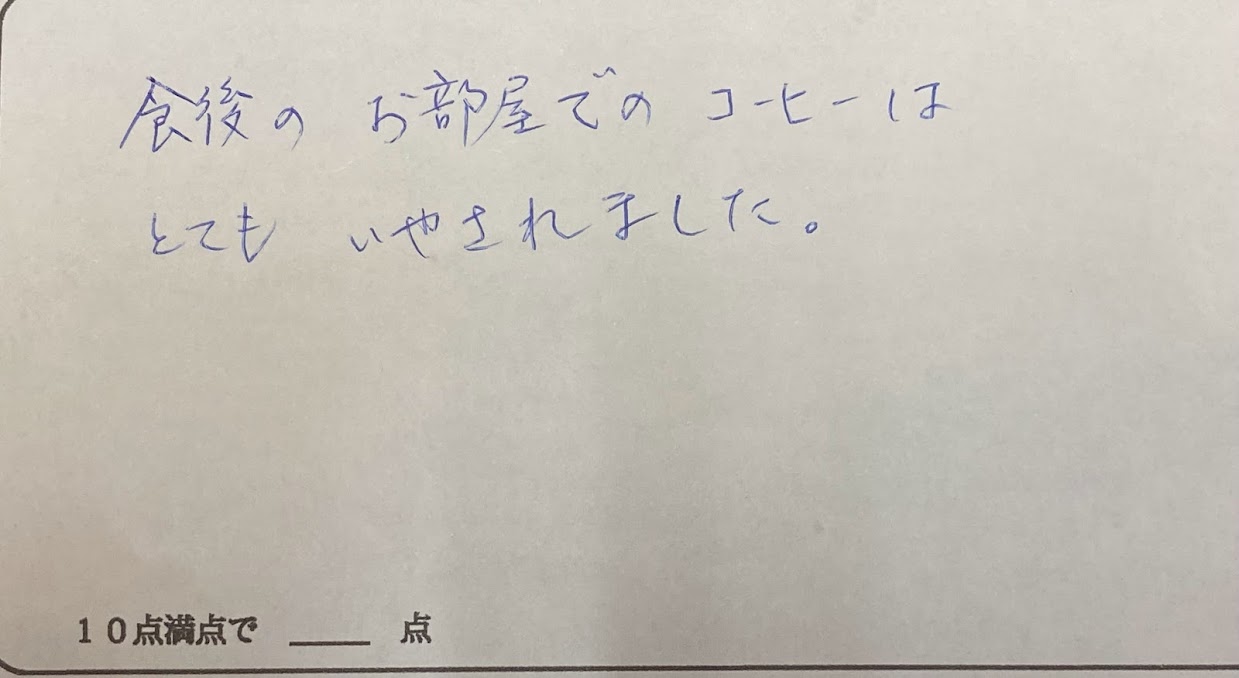 食後の お部屋での コーヒーは
とても いやされました。
10点満点で ____ 点